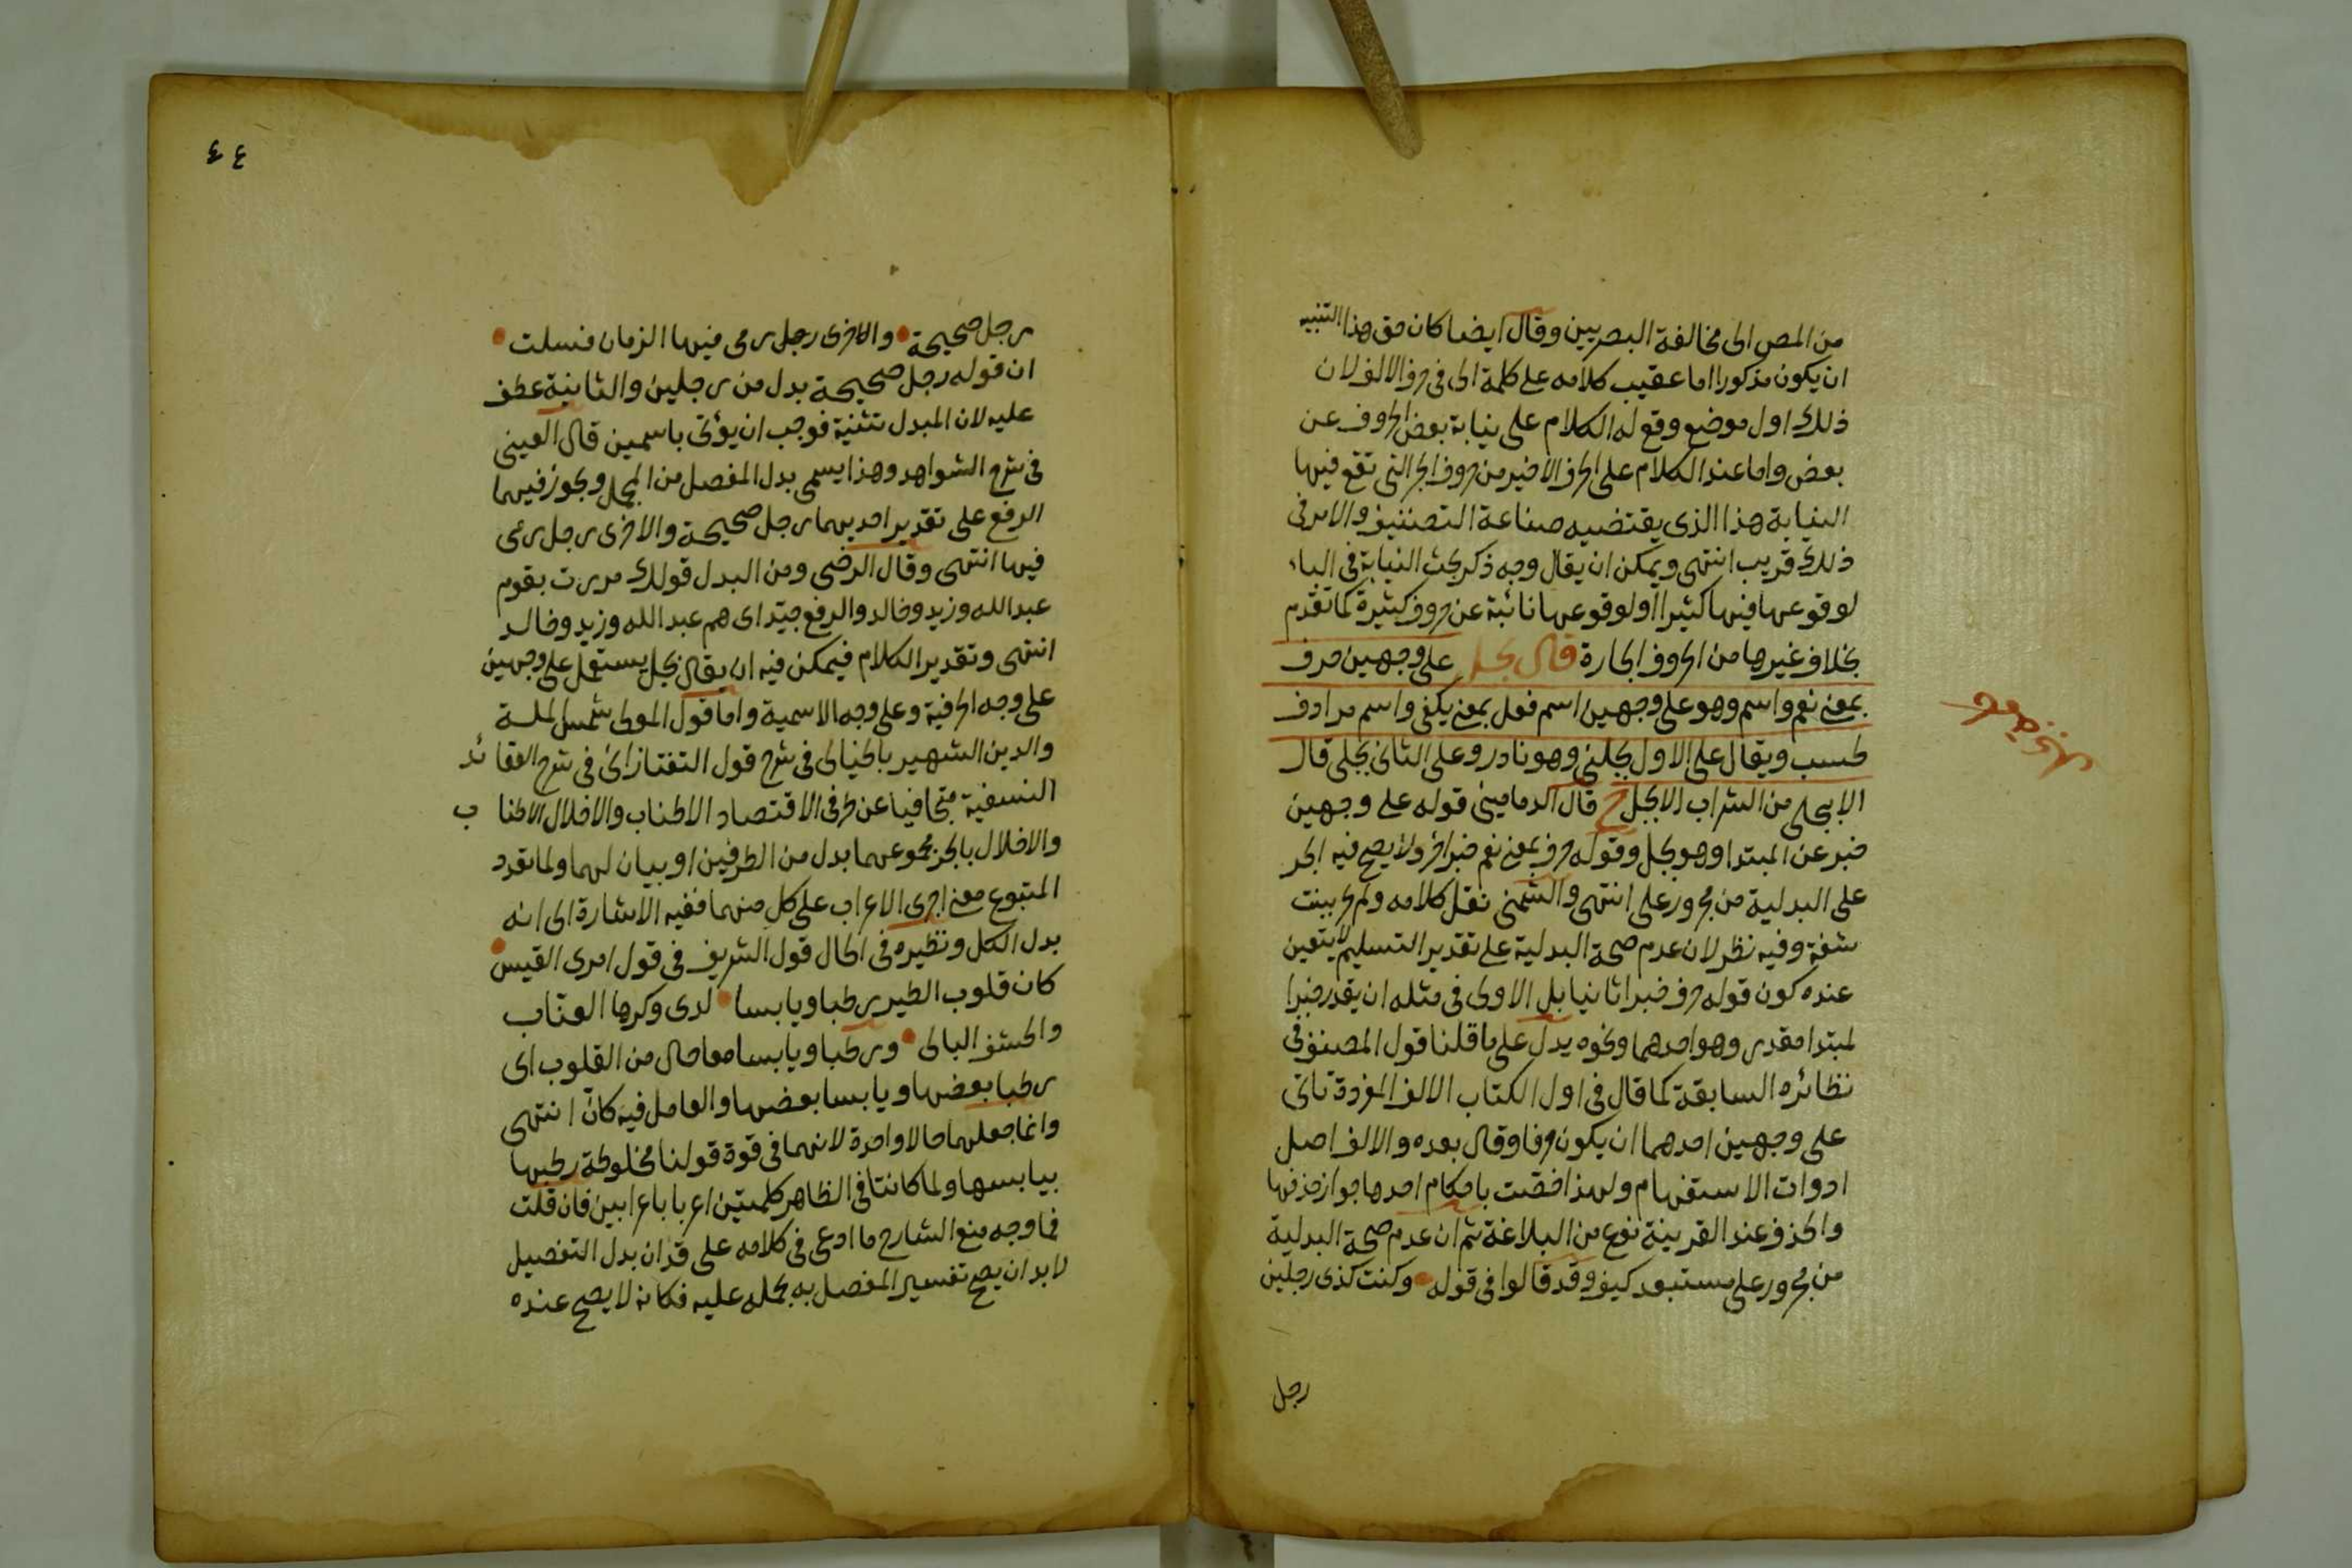 من المص الى مخالفة البصريين وقال ايضا كان حق هذا التنبيه
ان يكون مذكورا اما عقيب كلامه على كلمة الى فى حرف الالف لان
ذلك اول موضع وقع له الكلام على نيابة بعض الحروف عن
بعض واما عند الكلام على الحرف الاخير من حروف الجر التى تقع فيها
النيابة هذا الذى يقتضيه صناعة التصنيف والامر فى
ذلك قريب انتهى ويمكن ان يقال وجه ذكر بحث النيابة فى الباء
لوقوعها فيها كثيرا او لوقوعها نائبة عن حروف كثيرة كما تقدم
بخلاف غيرها من الحروف الجارة قال بجل على وجهين حرف
بمعنى نعم واسم وهو على وجهين اسم فعل بمعنى يكفى واسم مرادف
لحسب ويقال على الاول بجلنى وهو نادر وعلى الثانى بجلى قال
الا بجلى من الشراب الا بجل ح قال الدمامينى قوله على وجهين
خبر عن المبتدا وهو بجل وقوله حرف بمعنى نعم خبر اخر ولا يصح فيه الجر
على البدلية من مجرور على انتهى والشمنى نقل كلامه ولم يحر ببنت
شفة وفيه نظر لان عدم صحة البدلية على تقدير التسليم لا يتعين
عنده كون قوله حرف خبرا ثانيا بل الاولى فى مثله ان يقدر خبرا
لمبتدا مقدر وهو احدهما ونحوه يدل على ما قلنا قول المصنف فى
نظائره السابقة كما قال فى اول الكتاب الالف المفردة تاتى
على وجهين احدهما ان يكون حرفا وقال بعده والالف اصل
ادوات الاستفهام ولهذا خصت باحكام احدها جواز حذفها
والحذف عند القرينة نوع من البلاغة ثم ان عدم صحة البدلية
من مجرور على مستبعد كيف وقد قالوا فى قوله وكنت كذى رجلين
رجل
٤٤
رجل صحيحة والاخرى رجل رمى فيها الزمان فسلت
ان قوله رجل صحيحة بدل من رجلين والثانية عطف
عليه لان المبدل تثنية فوجب ان يؤتى باسمين قال العينى
فى شرح الشواهد وهذا يسمى بدل المفصل من المجمل ويجوز فيهما
الرفع على تقدير احديهما رجل صحيحة والاخرى رجل رمى
فيها انتهى وقال الرضى ومن البدل قولك مررت بقوم
عبد الله وزيد وخالد والرفع جيد اى هم عبد الله وزيد وخالد
انتهى وتقدير الكلام فيمكن فيه ان يقال بجل يستعمل على وجهين
على وجه الحرفية وعلى وجه الاسمية واما قول المولى شمس الملة
والدين الشهير بالخيالى فى شرح قول التفتازانى فى شرح العقائد
النسفية متجافيا عن طرفى الاقتصاد الاطناب والاخلال الاطناب
والاخلال بالجر مجموعهما بدل من الطرفين او بيان لهما ولما تعدد
المتبوع معنى اجرى الاعراب على كل منهما ففيه الاشارة الى انه
بدل الكل ونظيره فى الحال قول الشريف فى قول امرى القيس
كان قلوب الطير رطبا ويابسا لدى وكرها العناب
والحشف البالى ورطبا ويابسا معا حال من القلوب اى
رطبا بعضها ويابسا بعضها والعامل فيه كان انتهى
وانما جعلهما حالا واحدة لانهما فى قوة قولنا مخلوطة رطبها
بيابسها ولما كانتا فى الظاهر كلمتين اعربا باعرابين فان قلت
فما وجه منع الشارح ما ادعى فى كلامه على قد ان بدل التفصيل
لابد ان يصح تفسير المفصل به بحمله عليه فكانه لا يصح عنده